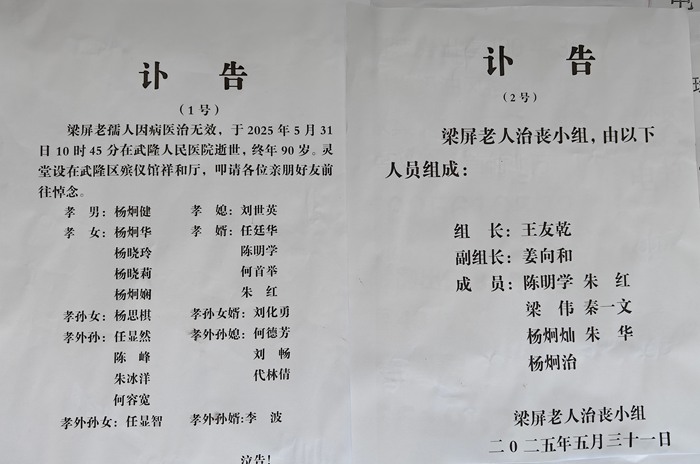 讣 告
（1号）
梁屏老孺人因病医治无效，于 2025 年 5 月 31
日 10 时 45 分在武隆人民医院逝世，终年 90 岁。灵
堂设在武隆区殡仪馆祥和厅，叩请各位亲朋好友前
往悼念。
孝 男：杨炯健 孝 媳：刘世英
孝 女：杨炯华 孝 婿：任廷华
杨晓玲 陈明学
杨晓莉 何首举
杨炯娴 朱 红
孝孙女：杨思棋 孝孙女婿：刘化勇
孝外孙：任显然 孝外孙媳：何德芳
陈 峰 刘 畅
朱冰洋 代林倩
何容宽
孝外孙女：任显智 孝外孙婿：李 波
泣告！
讣 告
（2号）
梁屏老人治丧小组，由以下
人员组成：
组 长：王友乾
副组长：姜向和
成 员：陈明学 朱 红
梁 伟 秦一文
杨炯灿 朱 华
杨炯治
梁屏老人治丧小组
二〇二五年五月三十一日